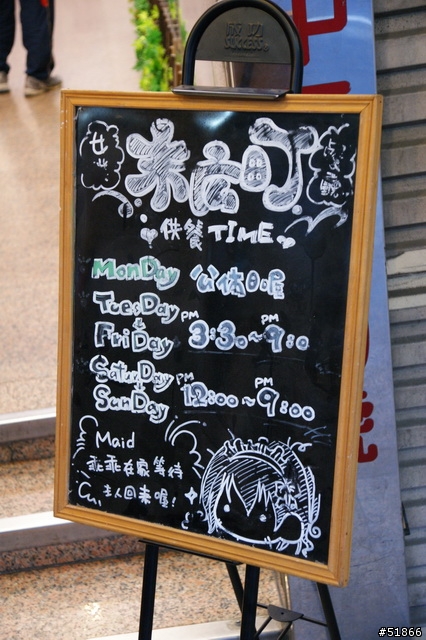 供餐TIME
MonDay 公休日喔
TuesDay
FriDay PM 3:30~PM 9:0
SaturDay
SunDay PM 12:00~PM 9:00
Maid
乖乖在家等待
主人回來喔!
#51866